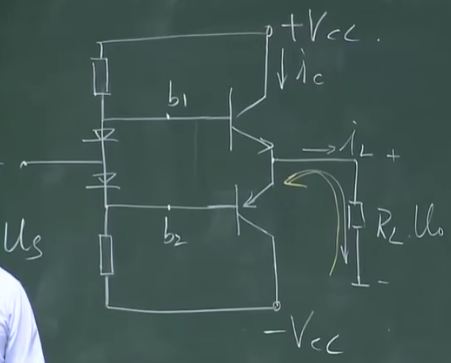 +Vcc.
ic
b1
iL +
Us
b2
RL Uo
-
-Vcc